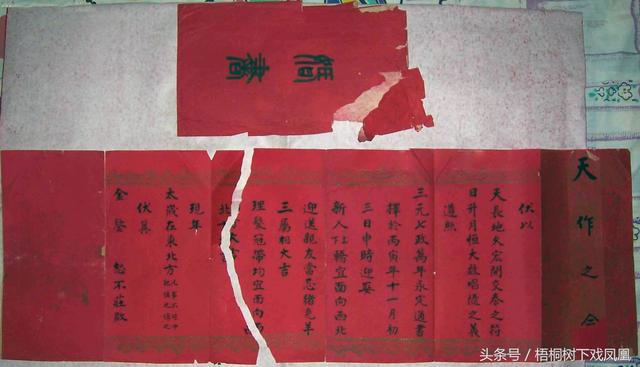 書
天作之合
伏以
天長地久宏開交泰之符
日升月恒大啟唱隨之義
遵照
三元七政萬年永定通書
擇於丙寅年十一月初
三日申時迎娶
新人下轎宜面向西北
迎送親友當忌猪兔羊
三屬相大吉
理髮冠帶均宜面向西
北
現年
太歲在東北方
犯慎之慎之
伏冀
金鑒 恕不莊啟
头条号 / 梧桐树下戏凤凰